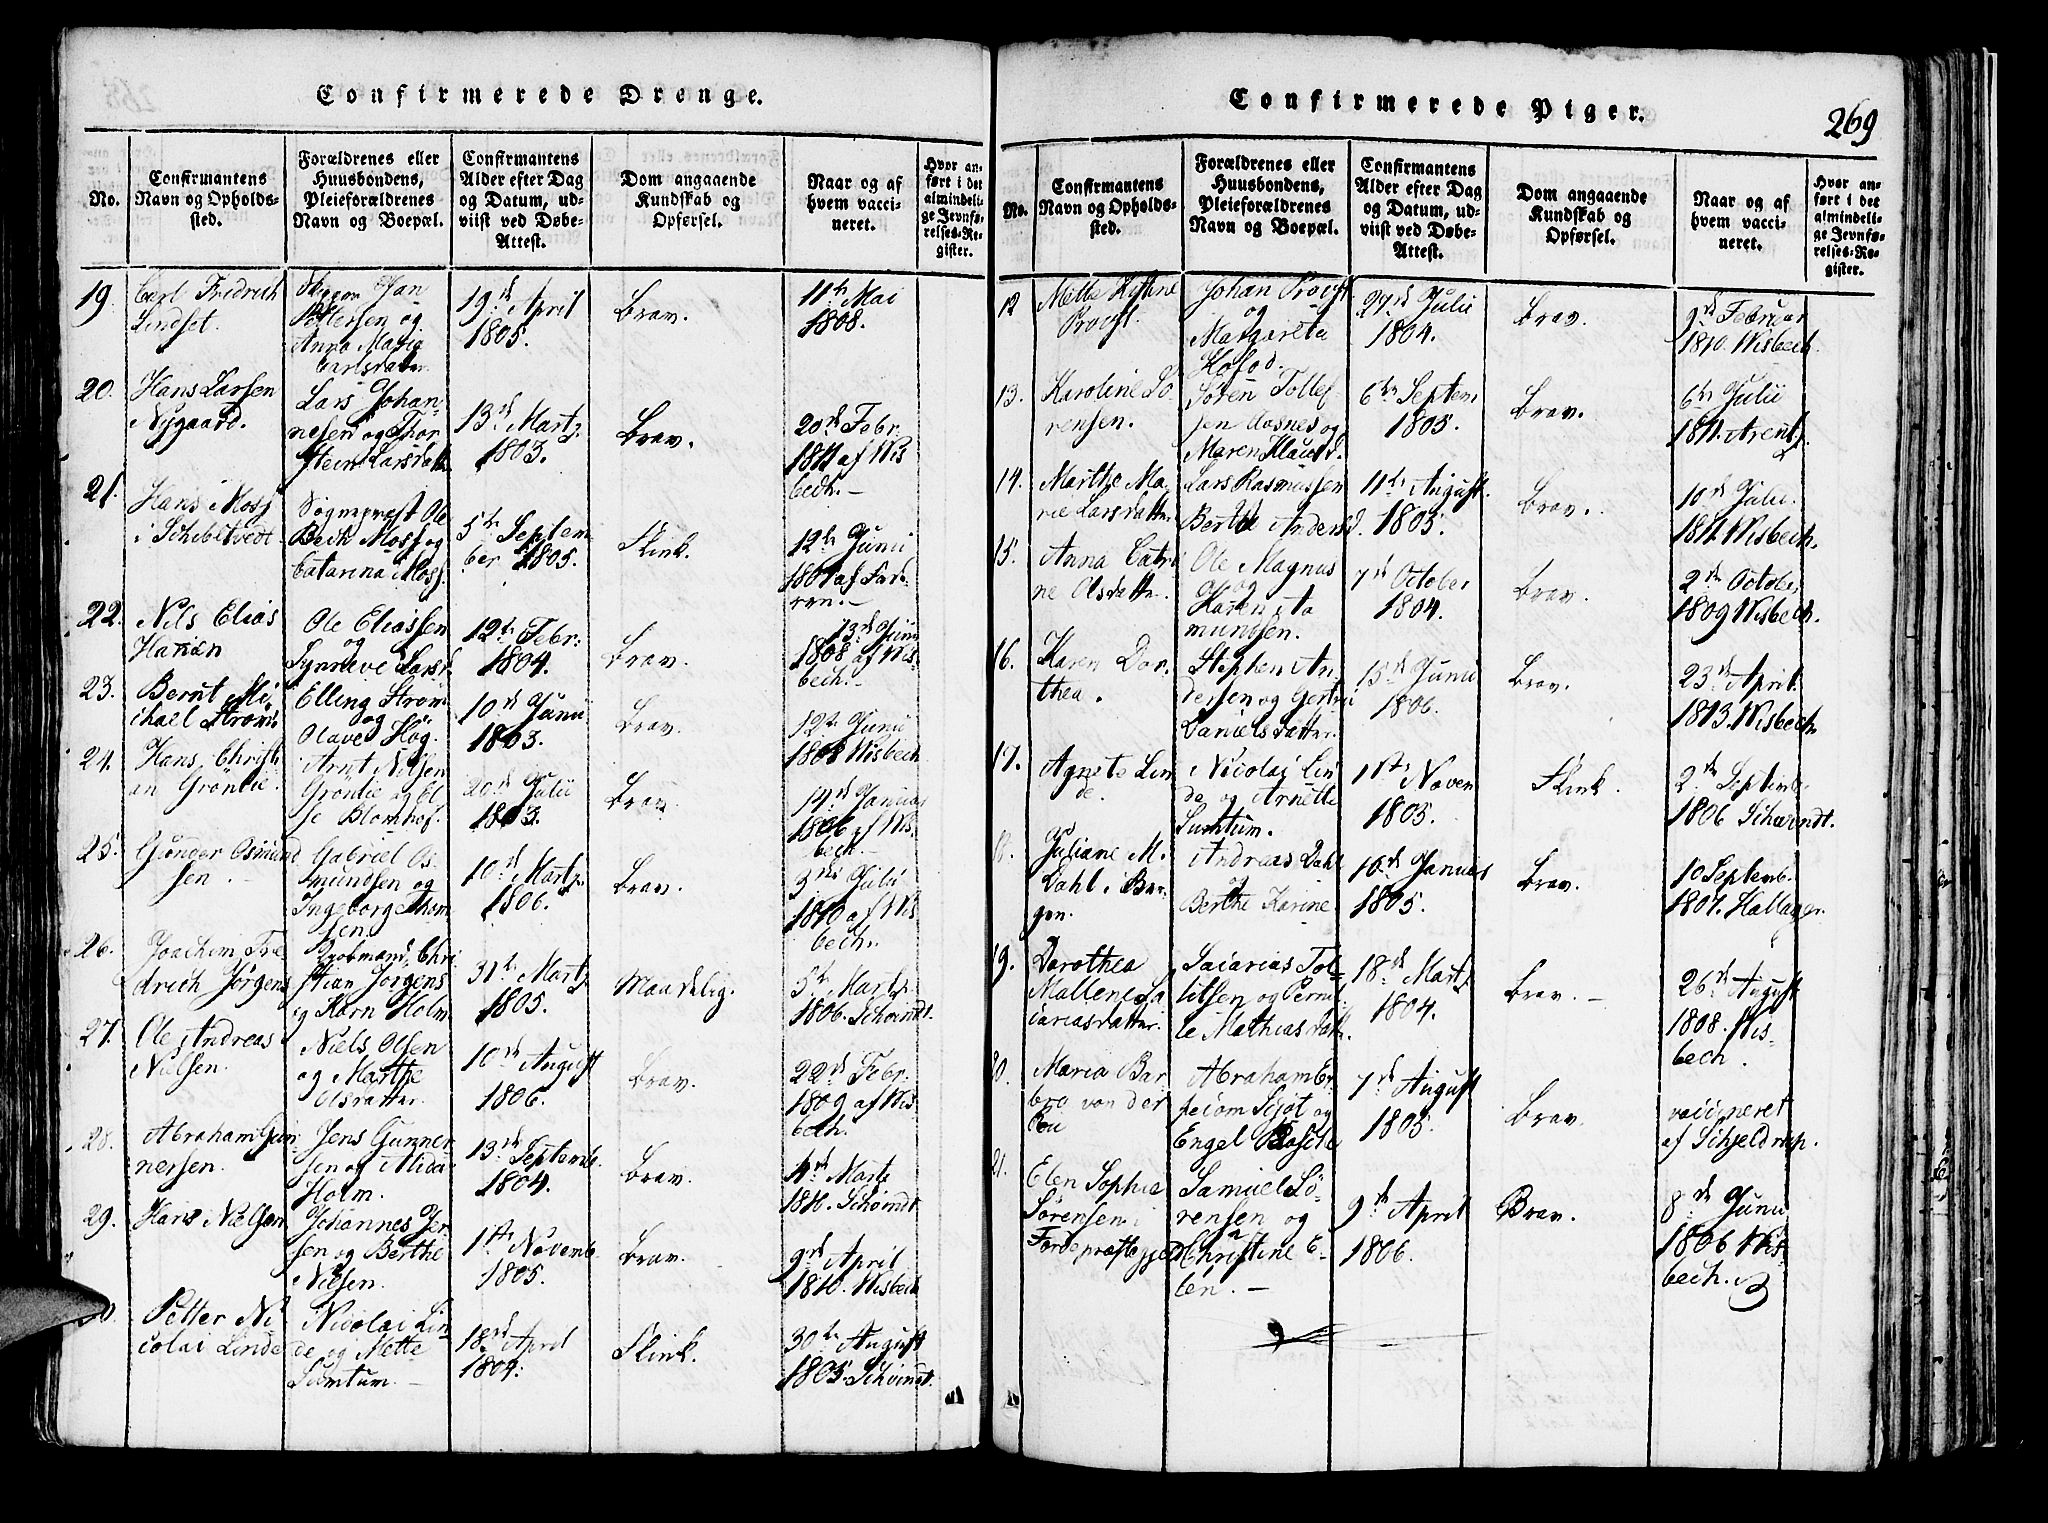 Confirmerede Drenge.
No.
Confirmantens
Navn og Opholds-
sted.
Forældrenes eller
Huusbondens,
Pleieforældrenes
Navn og Boepæl.
Confirmantens
Alder efter Dag
og Datum, ud-
viist ved Døbe-
Attest.
Dom angaaende
Kundskab og
Opførsel.
Naar og af
hvem vacci-
neret.
Hvor an-
ført i det
almindeli-
ge Jevnfø-
relses-Re-
gister.
19.
Carl Fridrich
Lindset.
Skipper Jan
Pettersen og
Anna Maria
Carlsdatter
19de April
1805.
Brav.
11te Mai
1808.
20.
Hans Larsen
Nygaard.
Lars Johan-
nesen og Thor
stein Larsdatt
13de Martz
1803.
Brav.
20de Febr.
1811 af Wis
bech.-
21.
Hans Mosz
i Schibstvedt
Sogneprest Ole
Bech Mosz og
Catarina Mosz.
5te Septem
ber 1805.
Flink.
12te Junii
1807 af
22.
Nils Elias
Hansen
Ole Eliassen
og
Synneve Larsd.
12te Febr.
1804.
Brav.
13de Junii
1808 af Wis-
bech.-
23.
Bernt Mi-
chael Strøm.
Elling Strøm
og
Olave Høg.
10de Junii
1803.
Brav.
12te Junii
1808 Wisbech
24.
Hans Christi
an Grøntie.
Arnt Nilsen
Grøntie og El
se Blomhof.
20de Julii
1803.
Brav.
14de Januar
1806 af Wis-
bech.-
25.
Gunder Osmund
sen.-
Gabriel Os-
mundsen og
Ingeborg Thom
sen.
10de Martz
1806.
Brav.
3die Julii
1810 af Wis
bech.
26.
Joachim Fri
drich Jørgens
Kjøbmand Chri
stian Jørgens
og Karn Holm
31te Martz
1805.
Maadelig.
5te Martz.
1806. Schvindt.
27.
Ole Andreas
Nielsen.
Niels Olsen
og Marthe
Olsdatter.
10de August
1806.
Brav.
22de Febr.
1809 af Wis
bech.
28.
Abraham Gun
nersen.
Jens Gunner
sen og
Holm.
13de Septemb.
1804.
Brav.
4de Marts
1810. Schvindt
29.
Hans Nielsen
Johannes
sen og Berthe
Nielsen.
1ste Novemb.
1805.
Brav.
9de April
1810. Wisbech
30.
Petter Ni
colai Linde
Nicolai Lin
de og Mette
Sumtum.-
18de April
1804.
Flink.
30te August
1805. Schvindt.
Confirmerede Piger.
269
No.
Confirmantens
Navn og Opholds-
sted.
Forældrenes eller
Huusbondens,
Pleieforældrenes
Navn og Boepæl.
Confirmantens
Alder efter Dag
og Datum, ud-
viist ved Døbe-
Attest.
Dom angaaende
Kundskab og
Opførsel.
Naar og af
hvem vacci-
neret.
Hvor an-
ført i det
almindeli-
ge Jevnfø-
relses-Re-
gister.
12
Mette Kistine
Provst.
Johan Provst
og
Margareta
Hofod.
27de Julii
1804.
Brav.
9de Februar
1810. Wisbech.
13.
Karoline Sø
rensen.
Søren Tollef
sen Aasnes og
Maren Klausd.
6te Septem
1805.
Brav.
6te Julii
1811. Arentz.
14.
Marthe Ma-
rie Larsdatter.
Lars Rasmussen
Berthe Andersd.
11te August.
1805.
Brav.
10de Julii.
1811. Wisbech.
15.
Anna Catri
ne Olsdatter.
Ole Magnus
og
Karen Aa
mundsen.
7de October
1804.
Brav.
2de October
1809 Wisbech.
16.
Karen Dor-
thea.
Stephen An
dersen og Gertru
Danielsdatter.
15de Junii
1806.
Brav.
23de April.
1813. Wisbech.
17.
Agnete Lin
de.
Nicolai Lin
de og Arnette
Sumtum.
11te Noven
1805.
Flink.
2de Septembe
1806 Schvindt.
18.
Juliane M.
Dahl i Ber-
gen.
Andreas Dahl
og
Berthe Karine
16de Januar
1805.
Brav.
10 Septemb.
1807. Hallager.
19.
Dorothea
Mallene Sa
cariasdatter.
Sacarias Tol-
litsen og Pernil
le Mathiasdatt.
18de Martz
1804.
Brav.-
26de August
1808. Wis-
bech.
20.
Maria Bar
bra von der
Abraham
Engel
7de August
1805.
Brav.
vaccineret
af Schjeldrup.
21.
Elen Sophia
Sørensen i
Førde præstegjeld
Samuel Sø-
rensen og
Christine E-
len.-
9de April
1806.
Brav.
8de Junii
1806 Wis-
bech.